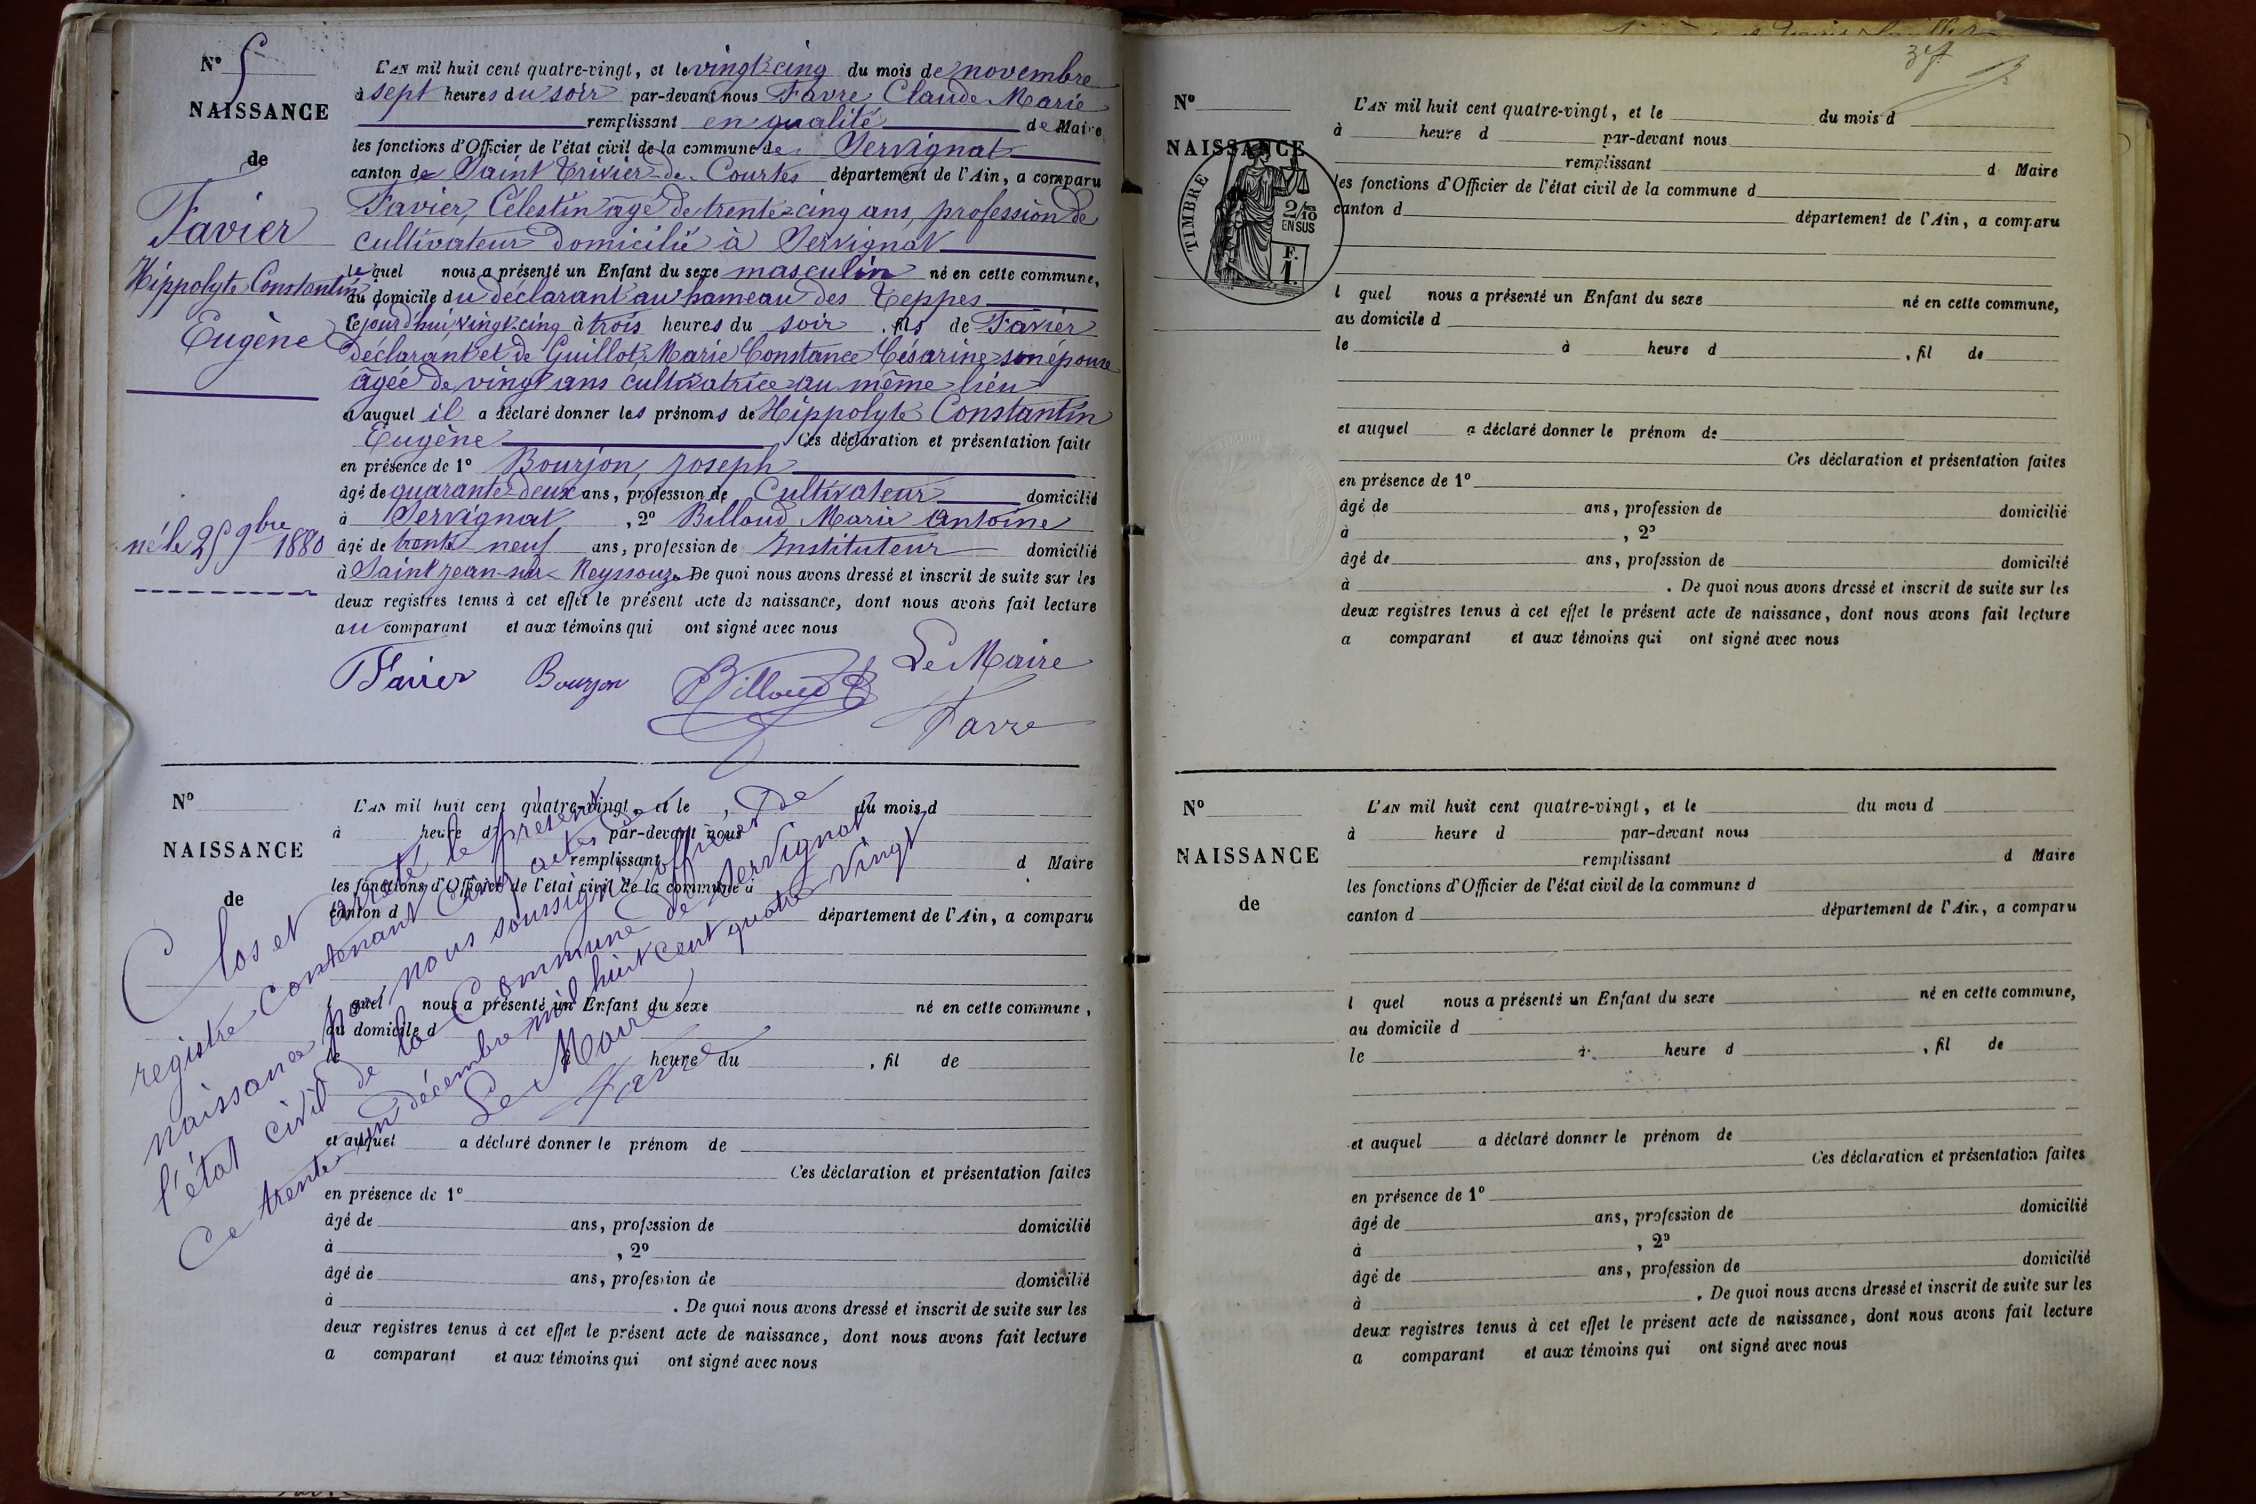 Nº 5
NAISSANCE
de
Favier
Hippolyte Constantin
Eugène
né le 25 9bre 1880
L'AN mil huit cent quatre-vingt, et le vingt-cinq du mois de novembre
à sept heures du soir par-devant nous Favre, Claude Marie
remplissant en qualité de Maire
les fonctions d'Officier de l'état civil de la commune de Servignat
canton de Saint Trivier-de-Courtes département de l'Ain, a comparu
Favier, Célestin agé de trente-cinq ans, profession de
cultivateur domicilié à Servignat
lequel nous a présenté un Enfant du sexe masculin né en cette commune,
au domicile du déclarant au hameau des Teppes
le jourd'hui vingt-cinq à trois heures du soir, fils de Favier
déclarant et de Guillot, Marie Constance Césarine son épouse
âgée de vingt ans cultivatrice au même lieu
et auquel il a déclaré donner les prénoms de Hippolyte Constantin
Eugène Ces déclaration et présentation faite
en présence de 1º Bourjon, Joseph
âgé de quarante-deux ans, profession de Cultivateur domicilié
à Servignat, 2º Billoud, Marie Antoine
âgé de trente neuf ans, profession de Instituteur domicilié
à Saint Jean-sur-Reyssouze De quoi nous avons dressé et inscrit de suite sur les
deux registres tenus à cet effet le présent acte de naissance, dont nous avons fait lecture
au comparant et aux témoins qui ont signé avec nous
Favier Bourjon Billoud Le Maire
Favre
Nº
NAISSANCE
de
L'AN mil huit cent quatre-vingt, et le du mois d
à heure d par-devant nous
remplissant d Maire
les fonctions d'Officier de l'état civil de la commune d
canton d département de l'Ain, a comparu
l quel nous a présenté un Enfant du sexe né en cette commune,
au domicile d
le à heure du , fil de
et auquel a déclaré donner le prénom de
Ces déclaration et présentation faites
en présence de 1º
âgé de ans, profession de domicilié
à , 2º
âgé de ans, profession de domicilié
à . De quoi nous avons dressé et inscrit de suite sur les
deux registres tenus à cet effet le présent acte de naissance, dont nous avons fait lecture
a comparant et aux témoins qui ont signé avec nous
Clos et arrêté le présent
registre contenant cinq actes de
naissance par nous soussigné officier de
l'état civil de la Commune de Servignat
Ce trente-un décembre mil huit cent quatre Vingt
Le Maire
Favre
Nº
NAISSANCE
TIMBRE
2/10
EN SUS
F.
1.
L'AN mil huit cent quatre-vingt, et le du mois d
à heure d par-devant nous
remplissant d Maire
les fonctions d'Officier de l'état civil de la commune d
canton d département de l'Ain, a comparu
l quel nous a présenté un Enfant du sexe né en cette commune,
au domicile d
le à heure d , fil de
et auquel a déclaré donner le prénom de
Ces déclaration et présentation faites
en présence de 1º
âgé de ans, profession de domicilié
à , 2º
âgé de ans, profession de domicilié
à . De quoi nous avons dressé et inscrit de suite sur les
deux registres tenus à cet effet le présent acte de naissance, dont nous avons fait lecture
a comparant et aux témoins qui ont signé avec nous
Nº
NAISSANCE
de
L'AN mil huit cent quatre-vingt, et le du mois d
à heure d par-devant nous
remplissant d Maire
les fonctions d'Officier de l'état civil de la commune d
canton d département de l'Ain, a comparu
l quel nous a présenté un Enfant du sexe né en cette commune,
au domicile d
le à heure d , fil de
et auquel a déclaré donner le prénom de
Ces déclaration et présentation faites
en présence de 1º
âgé de ans, profession de domicilié
à , 2º
âgé de ans, profession de domicilié
à . De quoi nous avons dressé et inscrit de suite sur les
deux registres tenus à cet effet le présent acte de naissance, dont nous avons fait lecture
a comparant et aux témoins qui ont signé avec nous